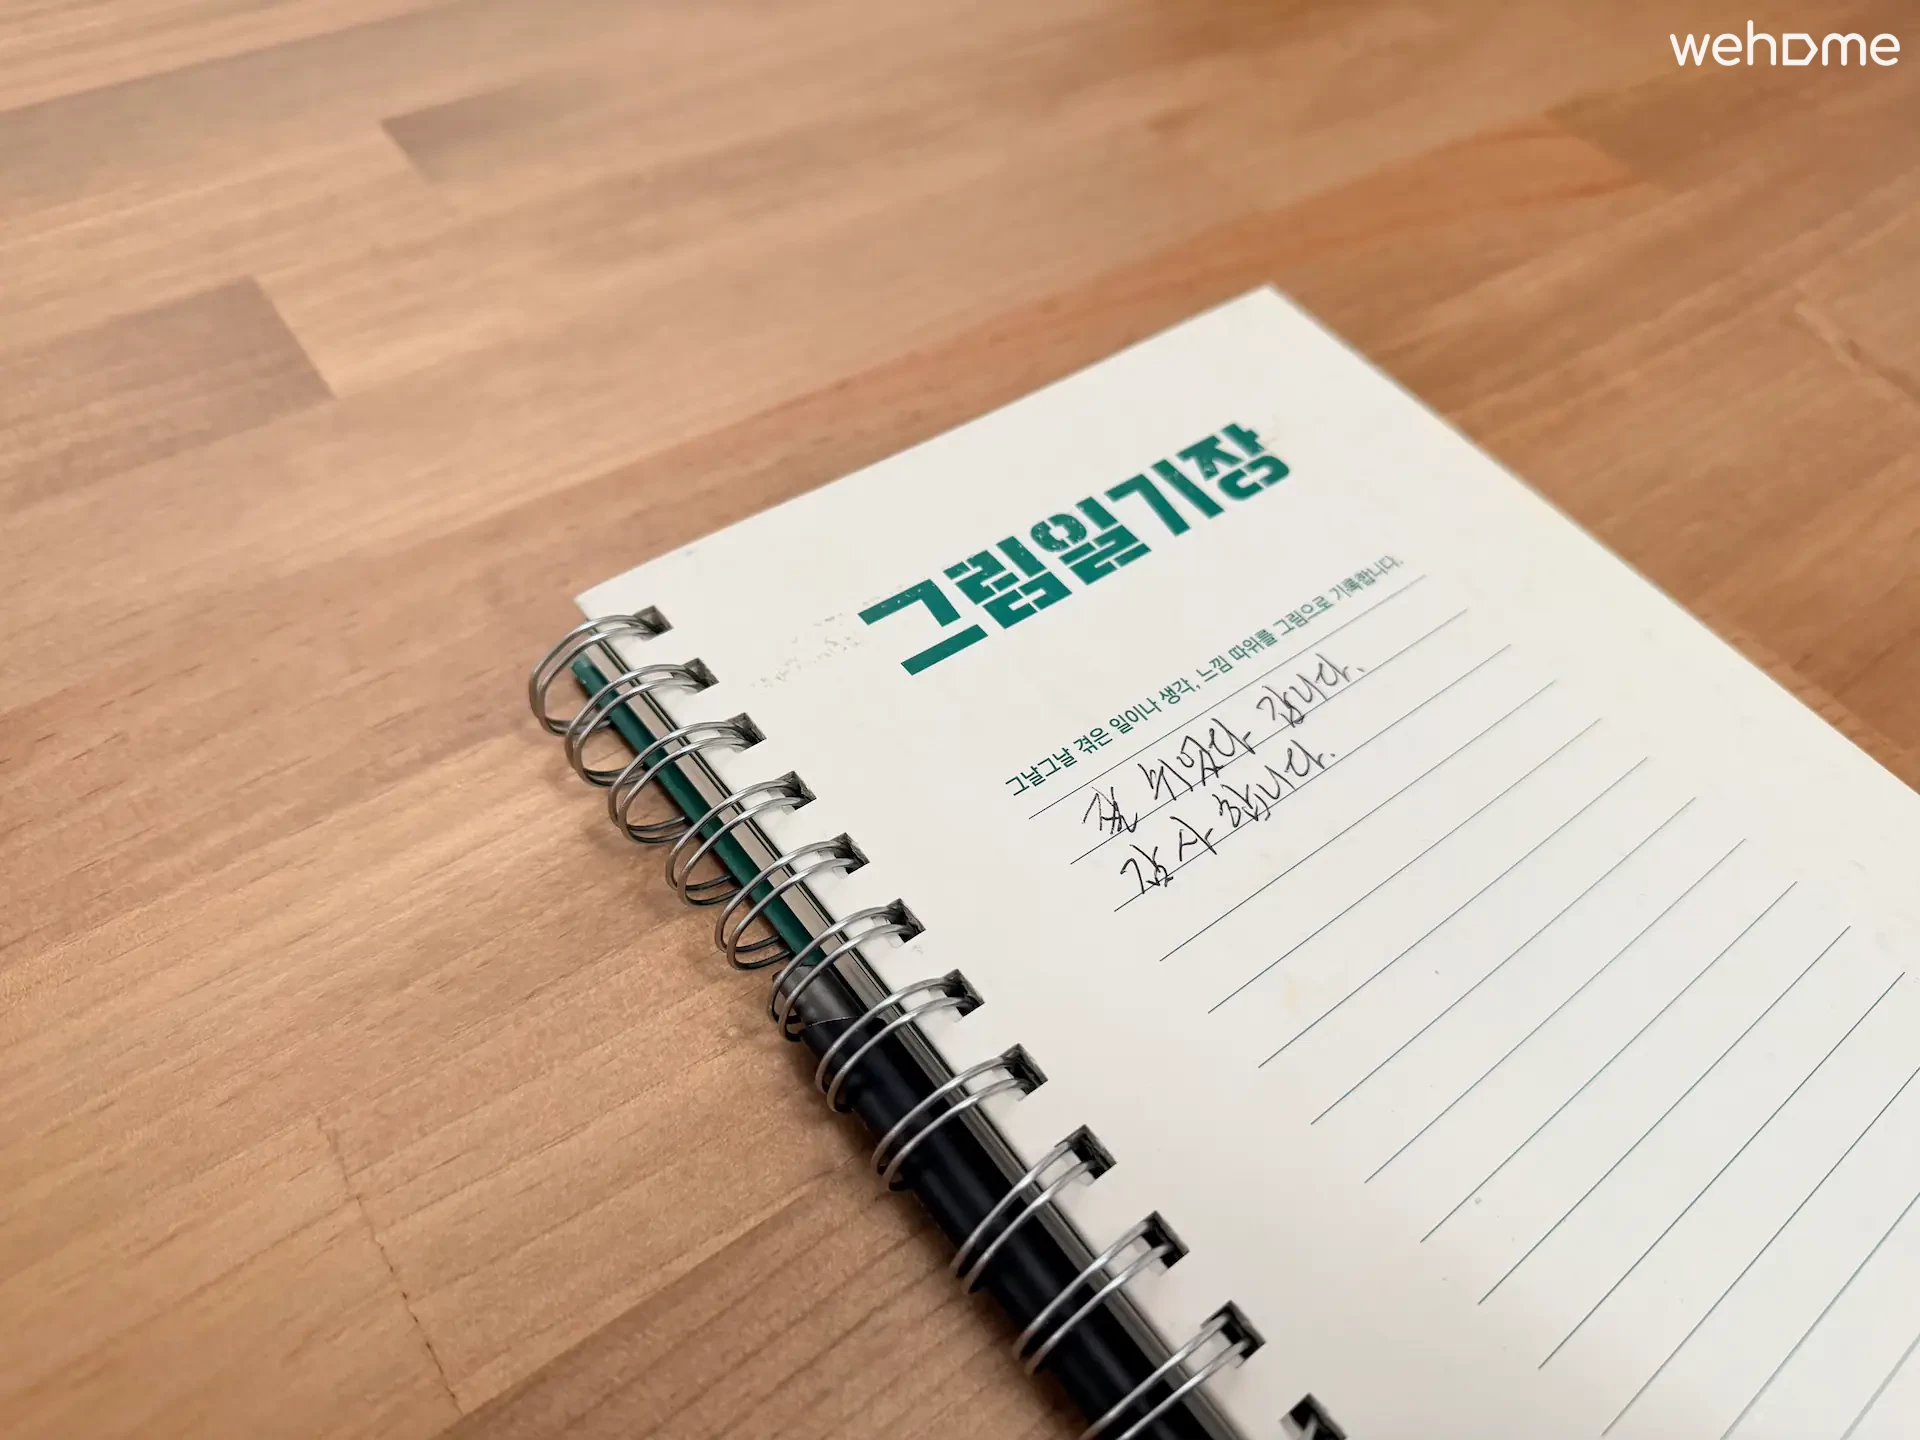 wehome
그림일기장
그날그날 겪은 일이나 생각, 느낌 따위를 그림으로 기록합니다.
잘 쉬었다 갑니다.
감사합니다.